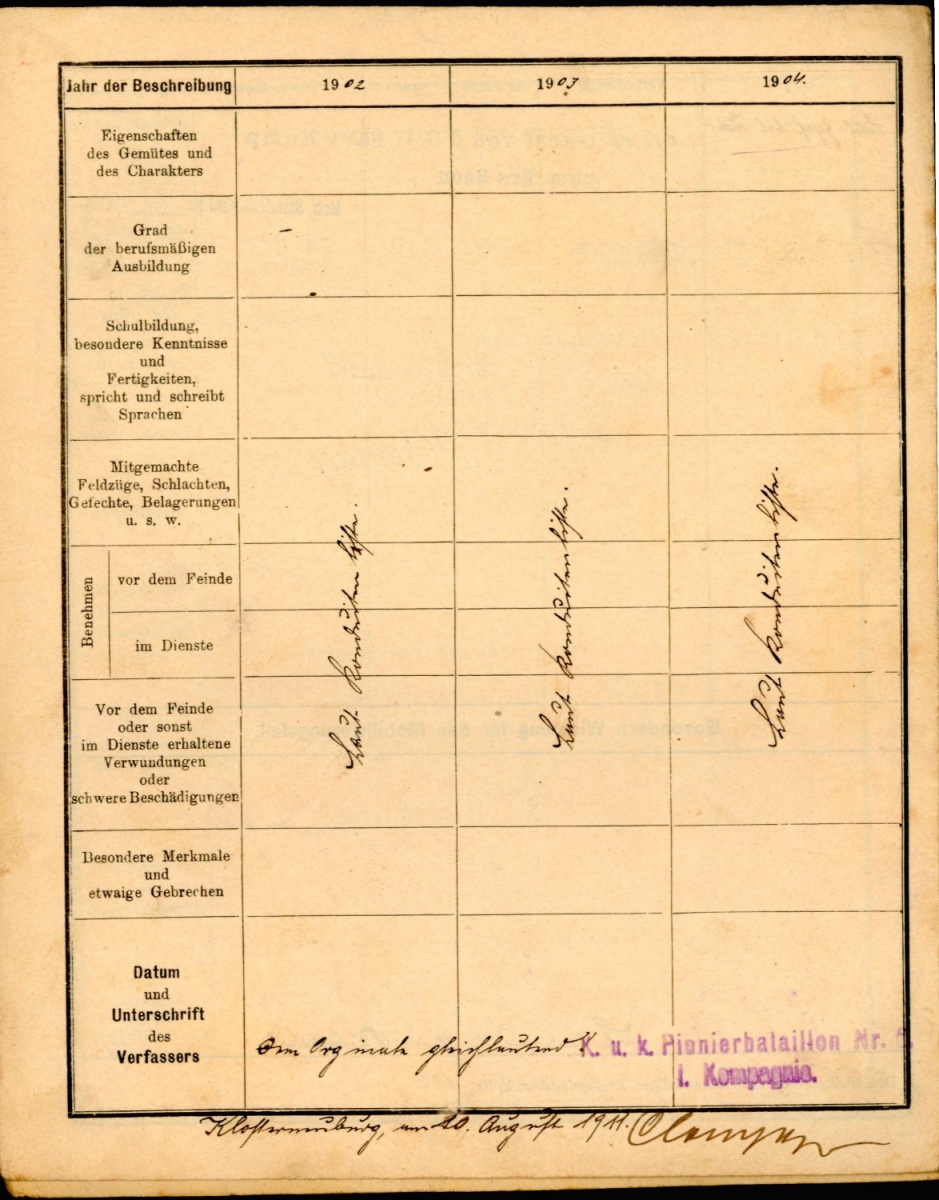 Jahr der Beschreibung 1902 1903 1904.
Eigenschaften
des Gemütes und
des Charakters
Grad
der berufsmäßigen
Ausbildung
Schulbildung,
besondere Kenntnisse
und
Fertigkeiten,
spricht und schreibt
Sprachen
Mitgemachte
Feldzüge, Schlachten,
Gefechte, Belagerungen
u. s. w.
Benehmen
vor dem Feinde
im Dienste
Vor dem Feinde
oder sonst
im Dienste erhaltene
Verwundungen
oder
schwere Beschädigungen
Laut Konduitenliste.
Laut Konduitenliste.
Laut Konduitenliste.
Besondere Merkmale
und
etwaige Gebrechen
Datum
und
Unterschrift
des
Verfassers
Dem Orginale gleichlautend:
K. u. k. Pionierbataillon Nr.
1. Kompagnie.
Klosterneuburg, am 10. August 1911.